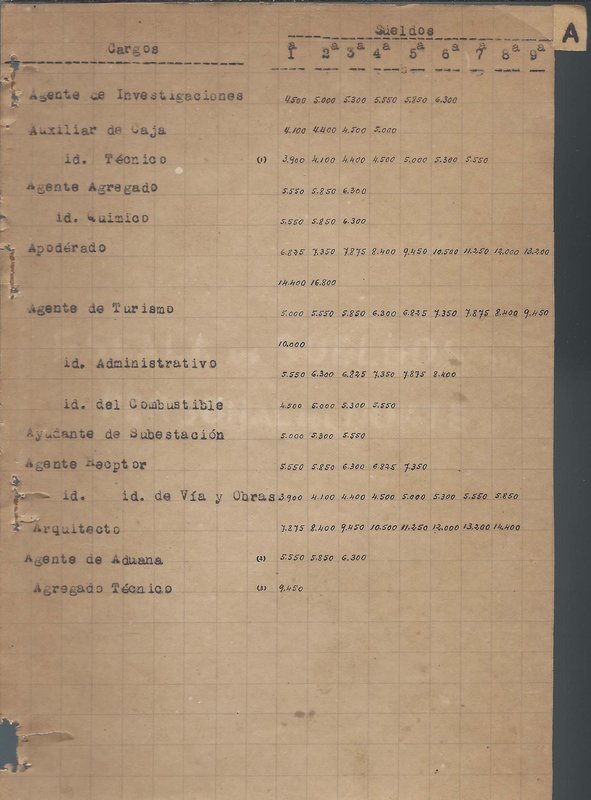 Sueldos
A
Cargos
1ª 2ª 3ª 4ª 5ª 6ª 7ª 8ª 9ª
Agente de Investigaciones 4.500 5.000 5.300 5.550 5.850 6.300
Auxiliar de Caja 4.100 4.400 4.500 5.000
id. Técnico (1) 3.900 4.100 4.400 4.500 5.000 5.300 5.550
Agente Agregado 5.550 5.850 6.300
id. Quimico 5.550 5.850 6.300
Apodérado 6.825 7.350 7.875 8.400 9.450 10.500 11.250 12.000 13.200
14.400 16.800
Agente de Turismo 5.000 5.550 5.850 6.300 6.825 7.350 7.875 8.400 9.450
10.000
id. Administrativo 5.550 6.300 6.825 7.350 7.875 8.400
id. del Combustible 4.500 5.000 5.300 5.550
Ayudante de Subestación 5.000 5.300 5.550
Agente Recptor 5.550 5.850 6.300 6.825 7.350
id. id. de Vía y Obras 3.900 4.100 4.400 4.500 5.000 5.300 5.550 5.850
Arquitecto 7.875 8.400 9.450 10.500 11.250 12.000 13.200 14.400
Agente de Aduana (2) 5.550 5.850 6.300
Agregado Técnico (3) 9.450